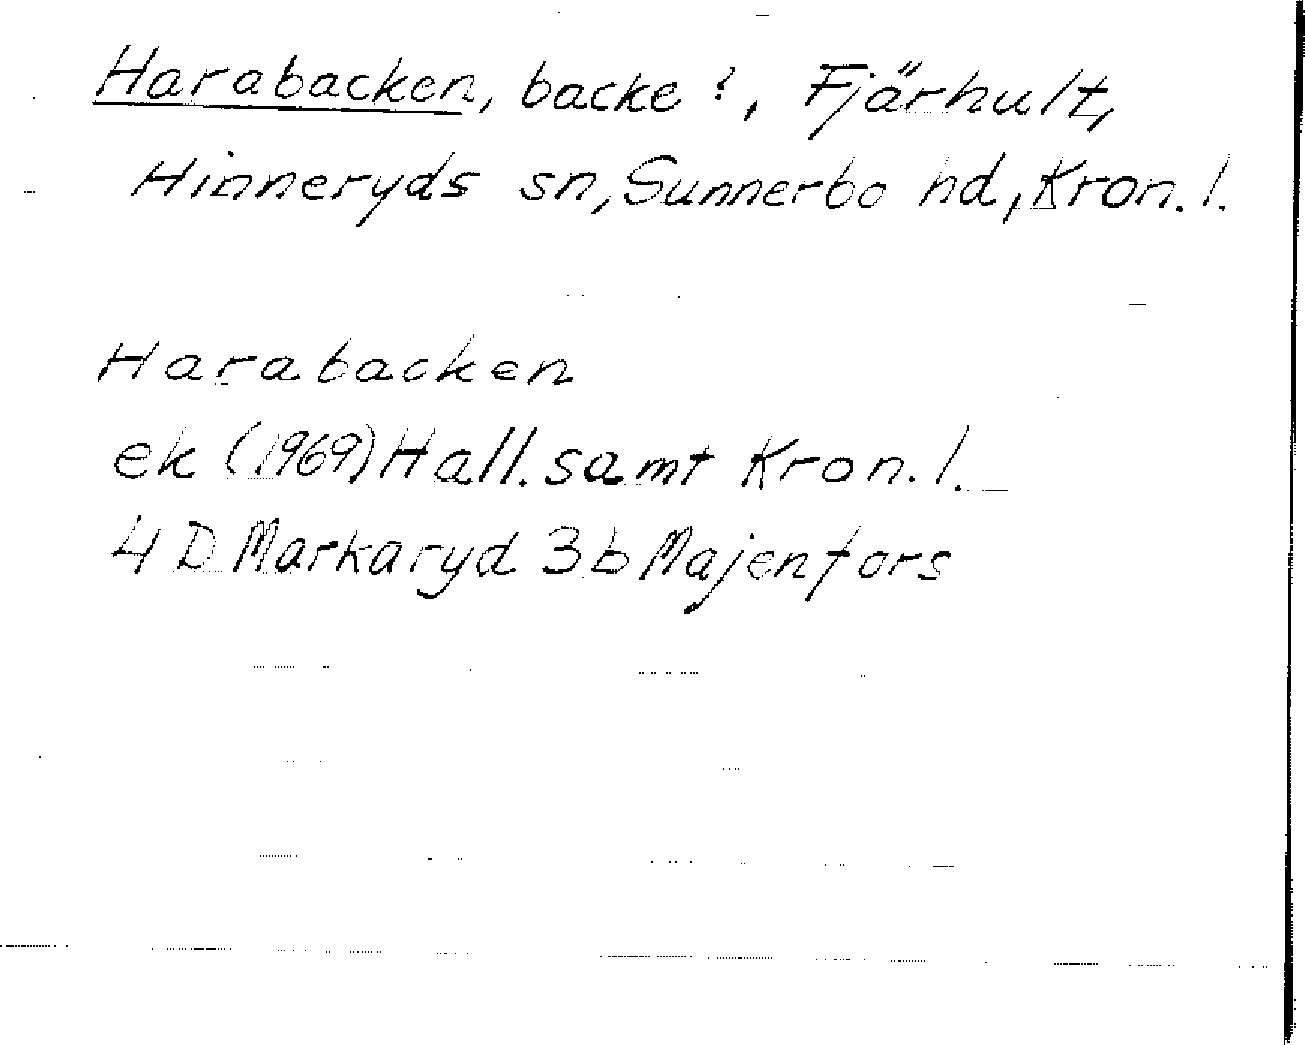 Harabacken, backe ?, Fjärhult,
Hinneryds sn, Sunnerbo hd, Kron. l.
Harabacken
ek (1969) Hall. samt Kron. l.
4 D Markaryd 3 b Majenfors